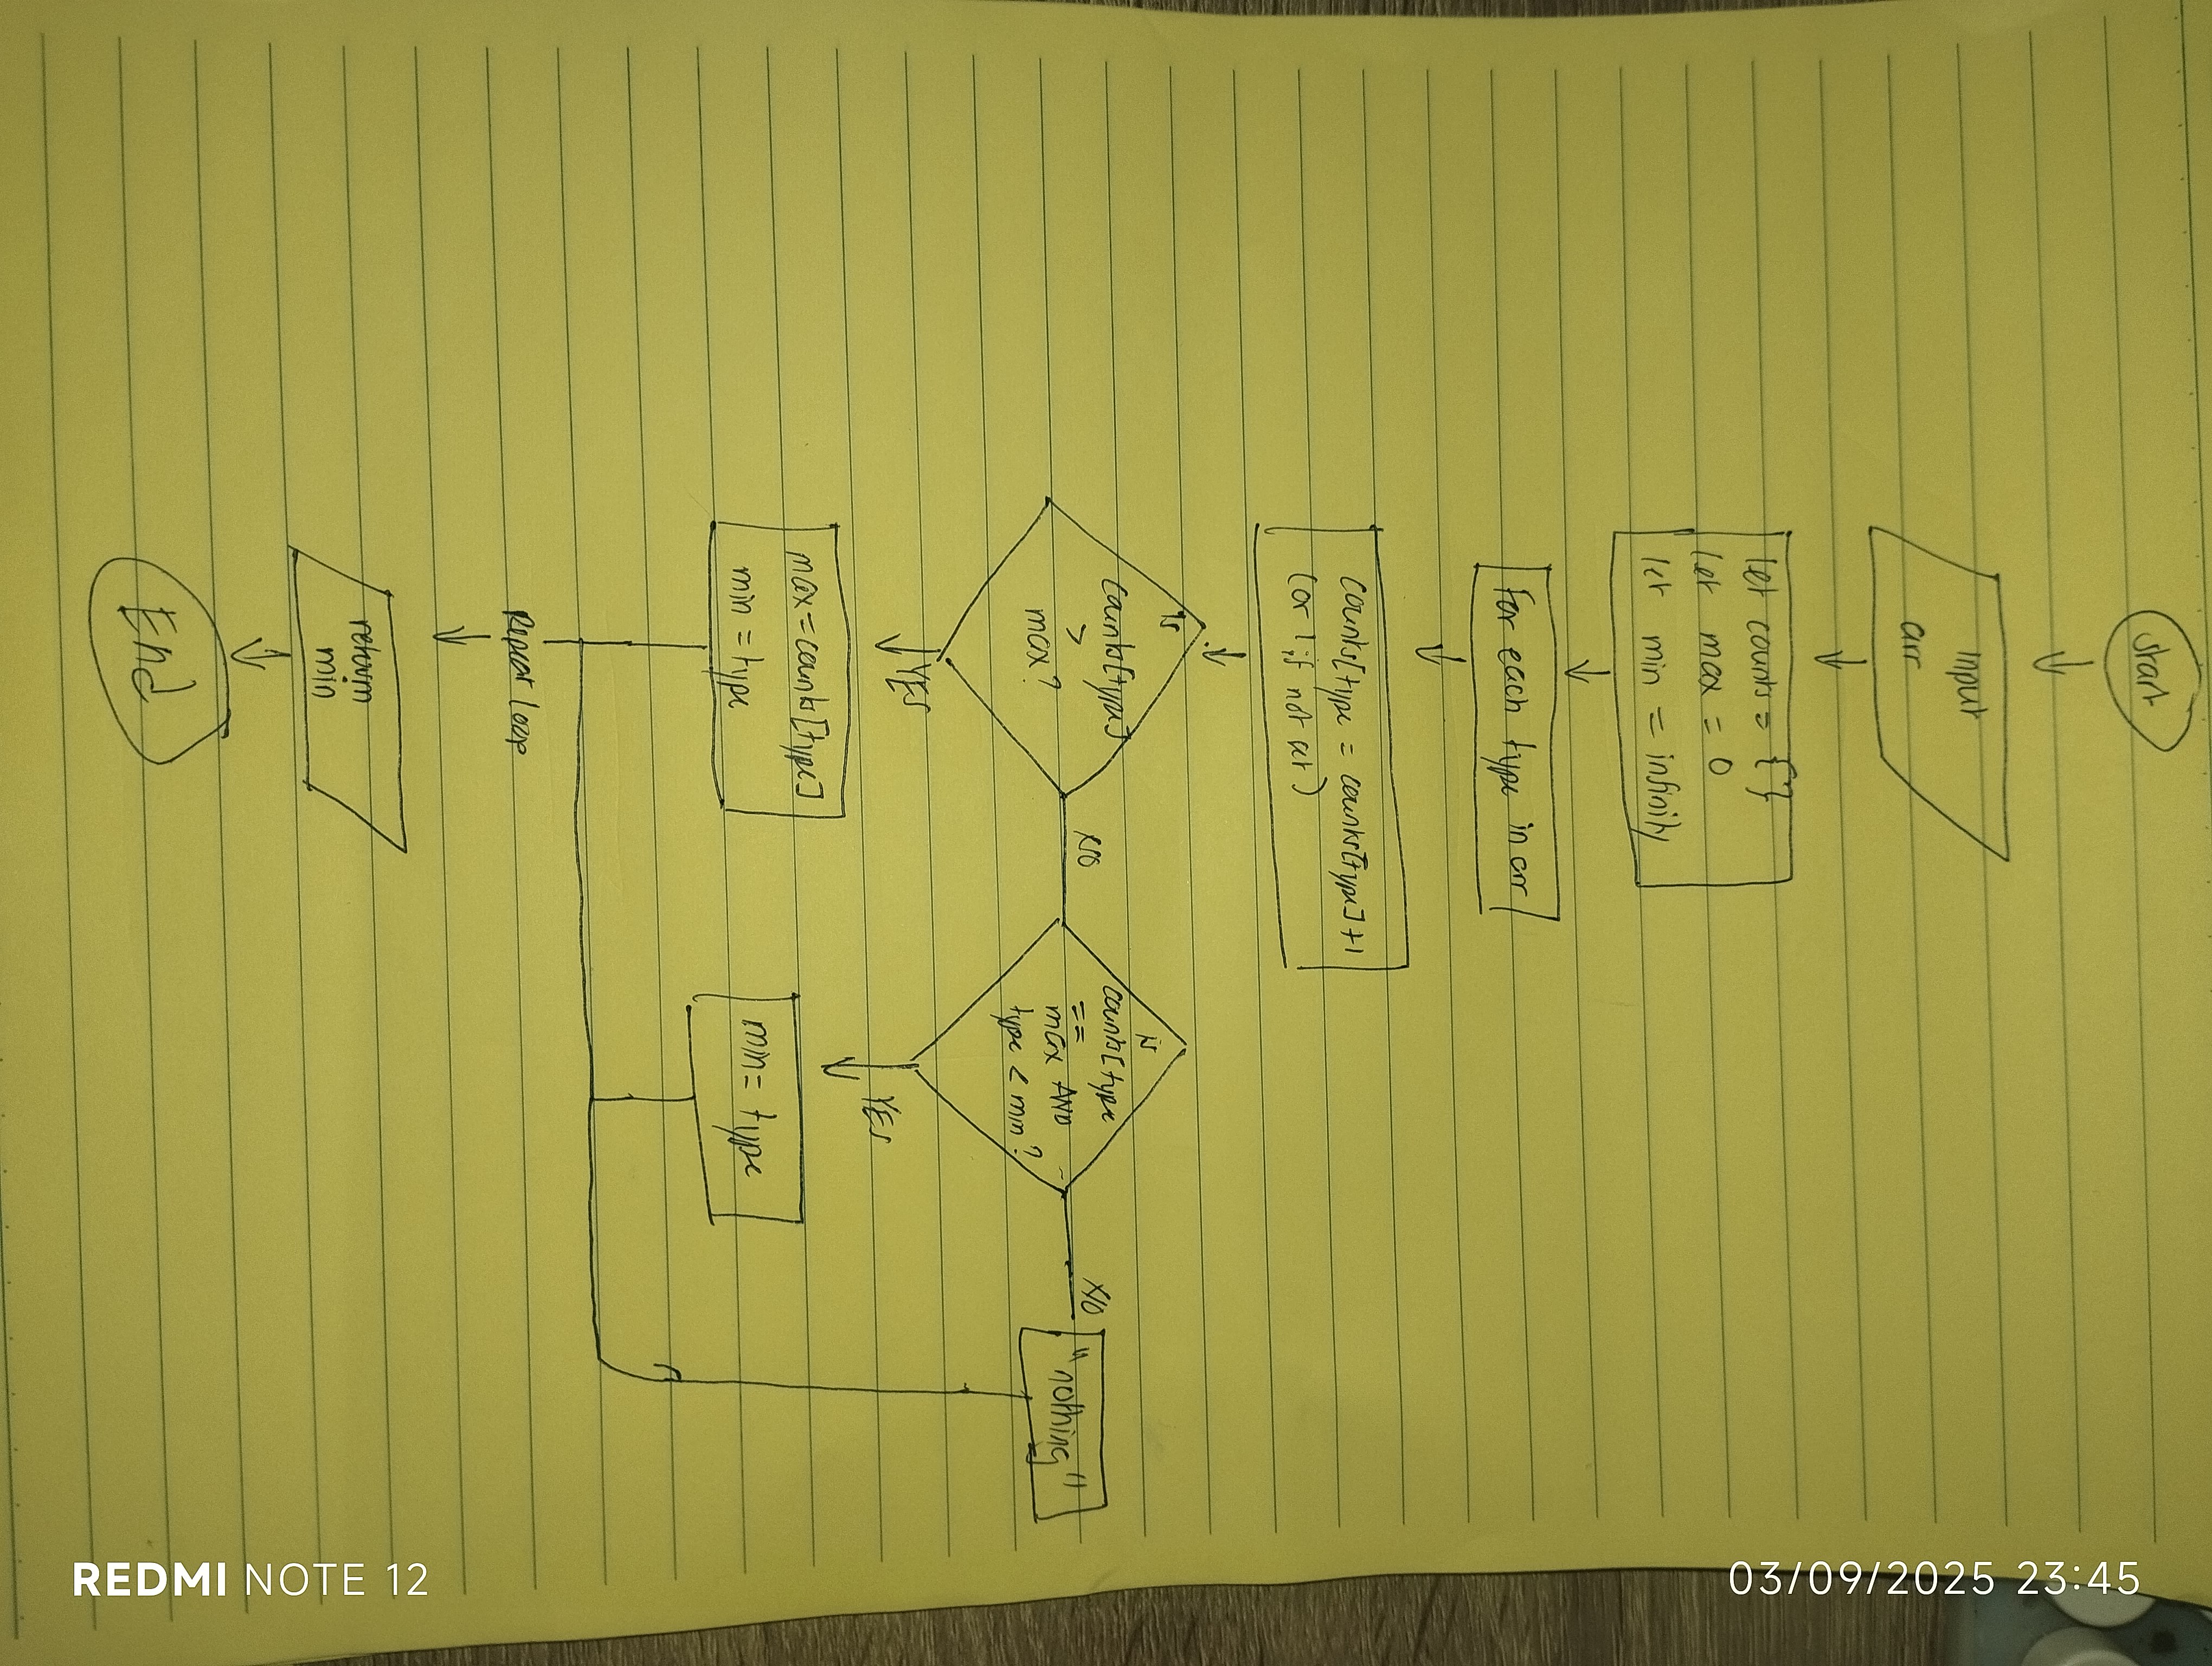 start
Input
arr
let counts = {}
let max = 0
let min = infinity
for each type in arr
counts[type = counts[type]+1
(or 1 if not set)
is
counts[type]
>
max?
NO
is
counts[type
==
max AND
type < min?
NO
"nothing"
YES
YES
max=counts[type]
min = type
min = type
Repeat loop
return
min
End
REDMI NOTE 12
03/09/2025 23:45